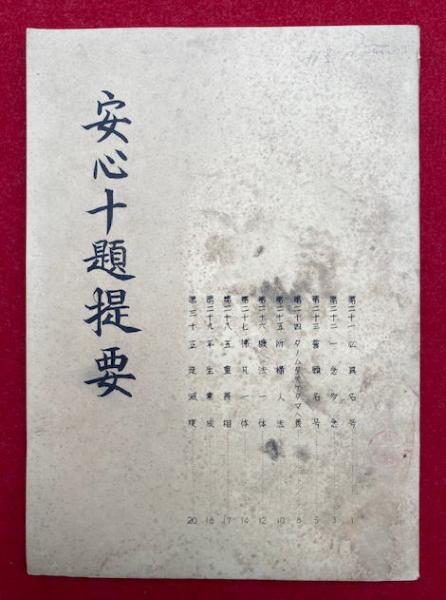 安心十題提要
第二十一 仏真名号 1
第二十二 一念多念 3
第二十三 誓願名号 5
第二十四 タノムタスケタマヘ 8
第二十五 所帰人法 10
第二十六 機法一体 12
第二十七 仏凡一体 14
第二十八 五重義相 17
第二十九 平生業成 18
第三十 正定滅度 20